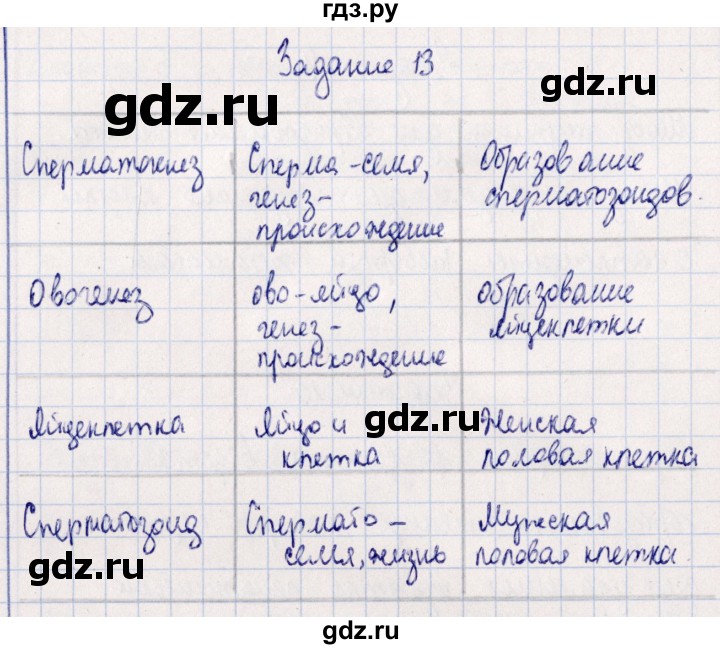 гдз.ру
Задание 13
gdz.ru
gdz.ru
Сперматогенез
Сперма - семя,
генез -
происхождение
Образование
сперматозоидов.
gdz.ru
gdz.ru
Овогенез
ово - яйцо,
генез -
происхождение
образование
яйцеклетки
Яйцеклетка
Яйцо и
клетка
gdz.ru
Женская
половая клетка
Сперматозоид
Спермато -
семя, жизнь
Мужская
половая клетка.
gdz.ru
gdz.ru
gdz.ru